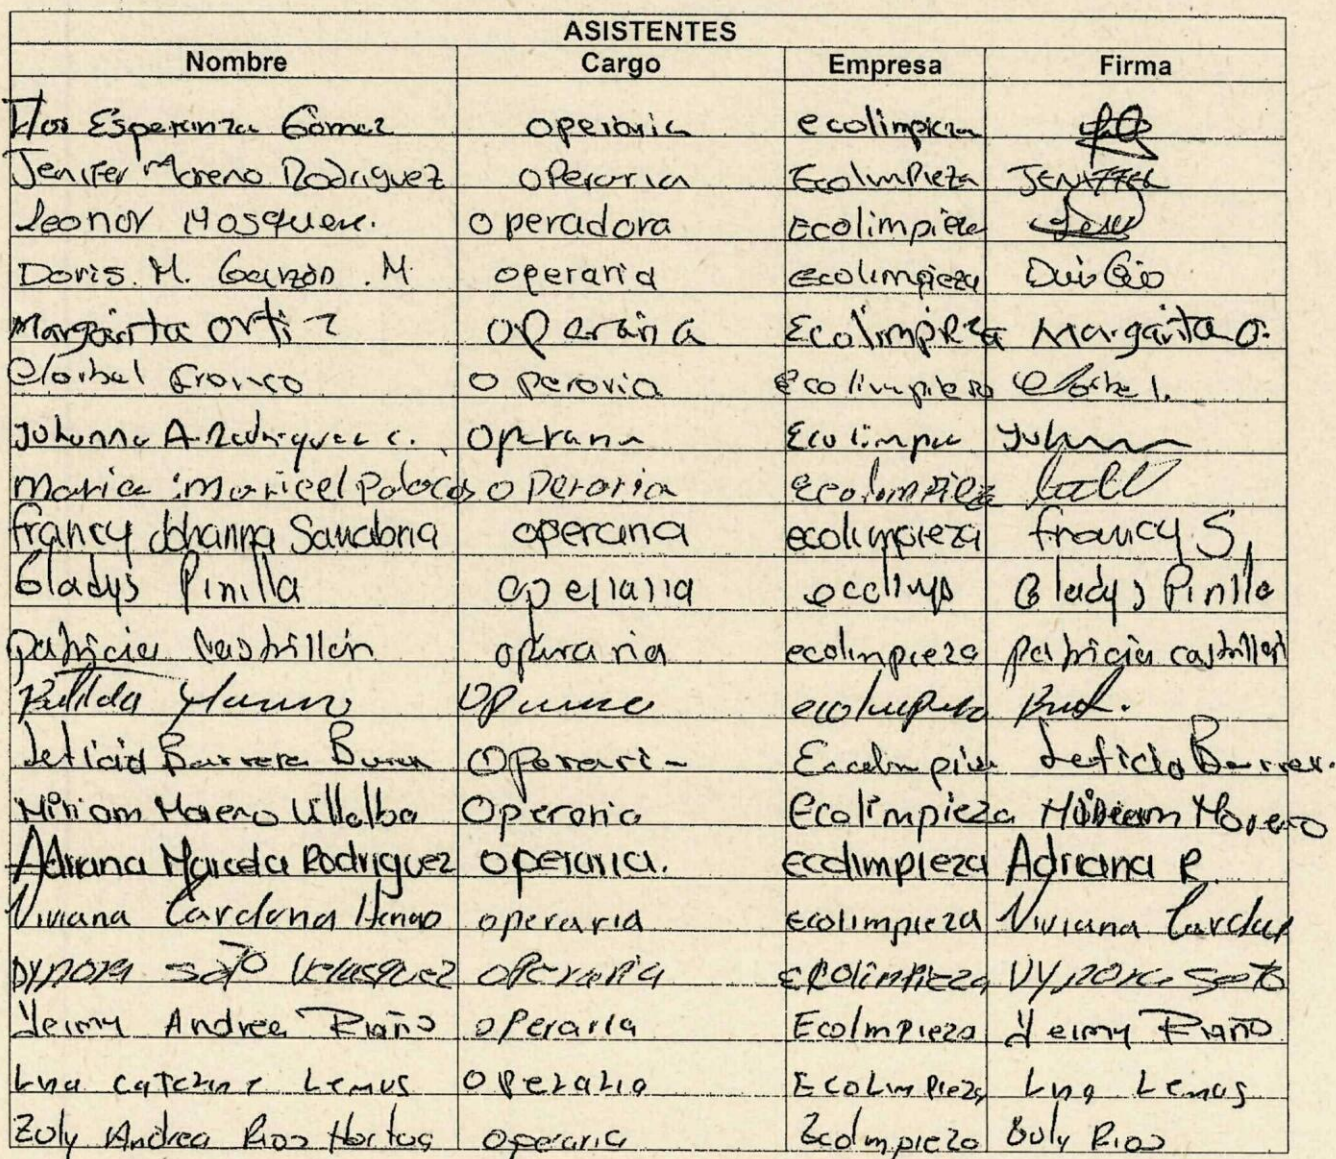 ASISTENTES
Nombre Cargo Empresa Firma
Flor Esperanza Gómez operaria ecolimpieza
Jenifer Moreno Rodriguez operaria Ecolimpieza JENIFFER
Leonor Mosquera. operadora Ecolimpieza
Doris. M. Garzón . M. operaria ecolimpieza
Margarita Ortiz operaria Ecolimpieza Margarita O.
Claribel Franco operaria ecolimpieza Claribel.
Johanna A. Rodriguez c. operaria Ecolimpie
Maria Maricel Palacios operaria ecolimpieza
francy Johanna Sanabria operaria ecolimpieza francy S.
Gladys Pinilla operaria ecolimp Gladys Pinilla
patricia Castrillón operaria ecolimpieza patricia castrillón
operaria ecolimpieza
Leticia Barrera operaria Ecolimpieza Leticia Barrera.
Miriam Moreno Villalba Operaria Ecolimpieza Miriam Moreno
Adriana Marcela Rodriguez operaria. ecolimpieza Adriana R.
Viviana Cardona Henao operaria ecolimpieza Viviana Cardona
Dynora soto Velasquez operaria ecolimpieza Dynora soto
Yeimy Andrea Riaño operaria Ecolmpieza Yeimy Riaño
Lina caterine Lemus operaria Ecolimpieza Lina Lemus
Zuly Andrea Rios Hortua operaria Ecolmpieza Zuly Rios